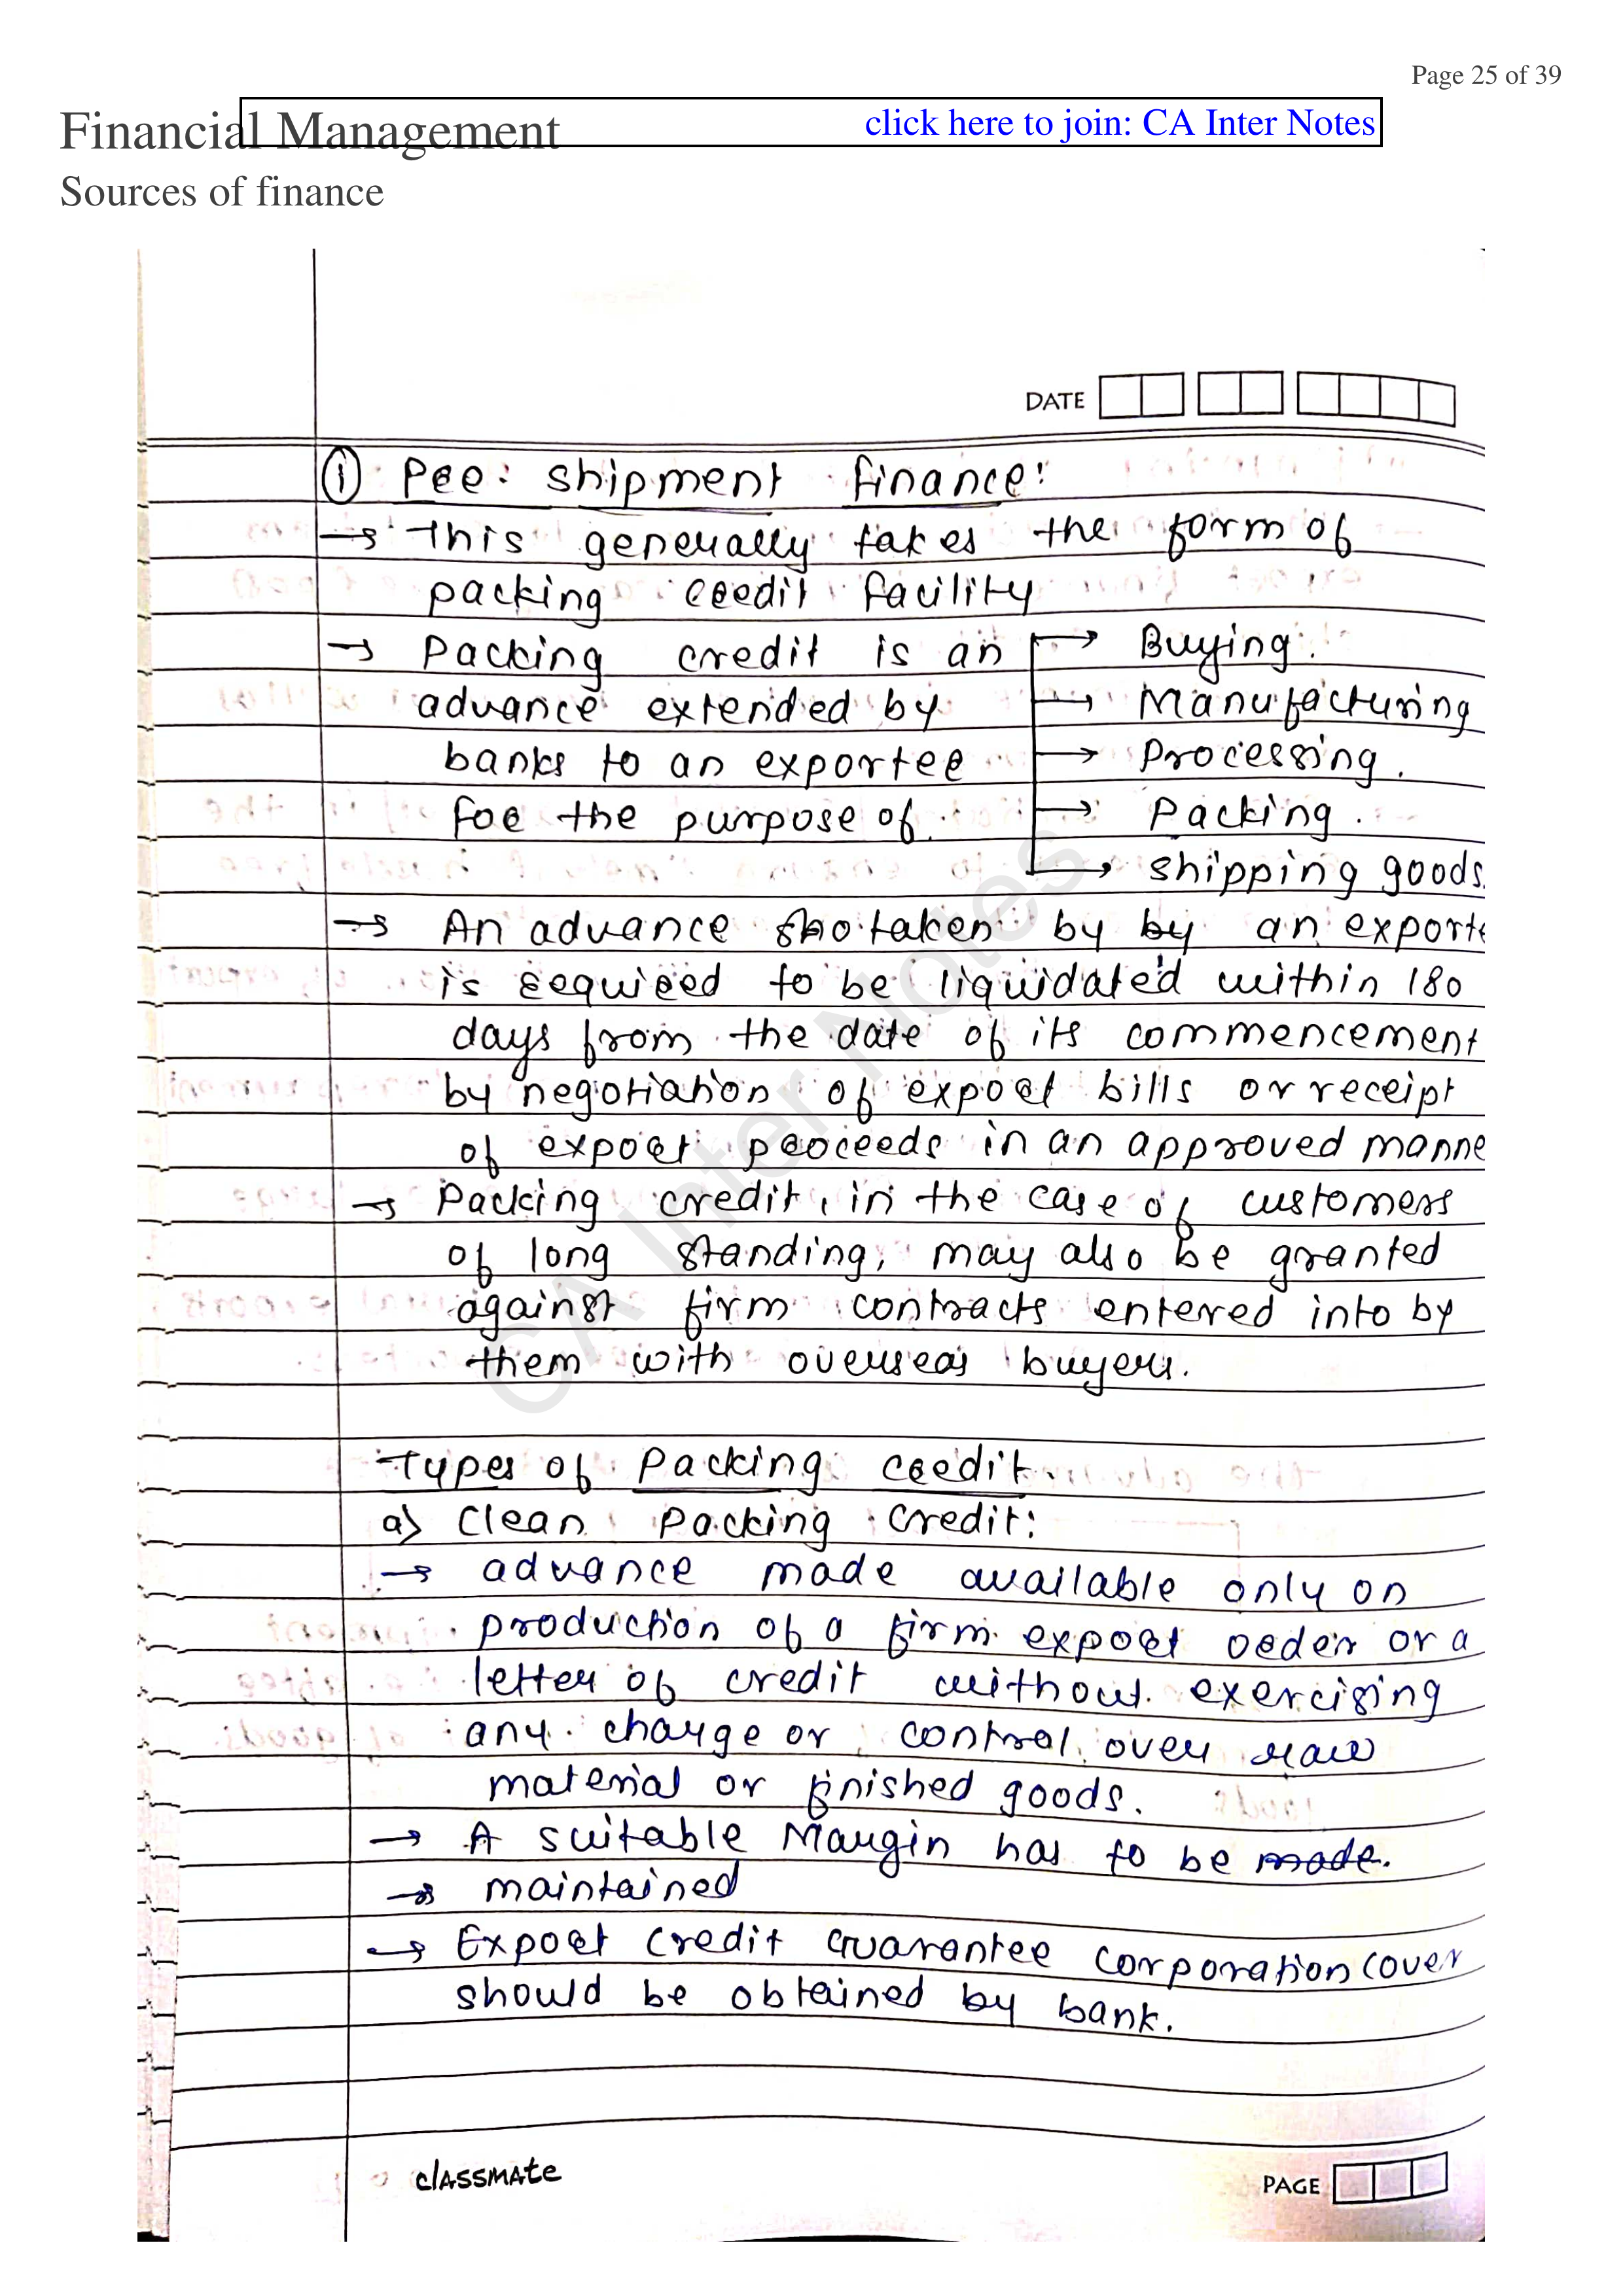 Page 25 of 39
Financial Management
click here to join: CA Inter Notes
Sources of finance
DATE
① Pre: shipment finance:
→ This generally takes the form of
packing credit facility
→ Packing credit is an → Buying.
advance extended by → Manufacturing
banks to an exporter → Processing.
for the purpose of. → Packing.
→ shipping goods.
→ An advance so taken by by an exporte
is required to be liquidated within 180
days from the date of its commencement
by negotiation of export bills or receipt
of export proceeds in an approved manne
→ Packing credit, in the case of customers
of long standing, may also be granted
against firm contracts entered into by
them with overseas buyers.
Types of Packing credit.
a) Clean Packing Credit:
→ advance made available only on
production of a firm export order or a
letter of credit without exercising
any charge or control over raw
material or finished goods.
→ A suitable Margin has to be made.
→ maintained
→ Export Credit Guarantee Corporation Cover
should be obtained by bank.
CA Inter Notes
classmate
PAGE